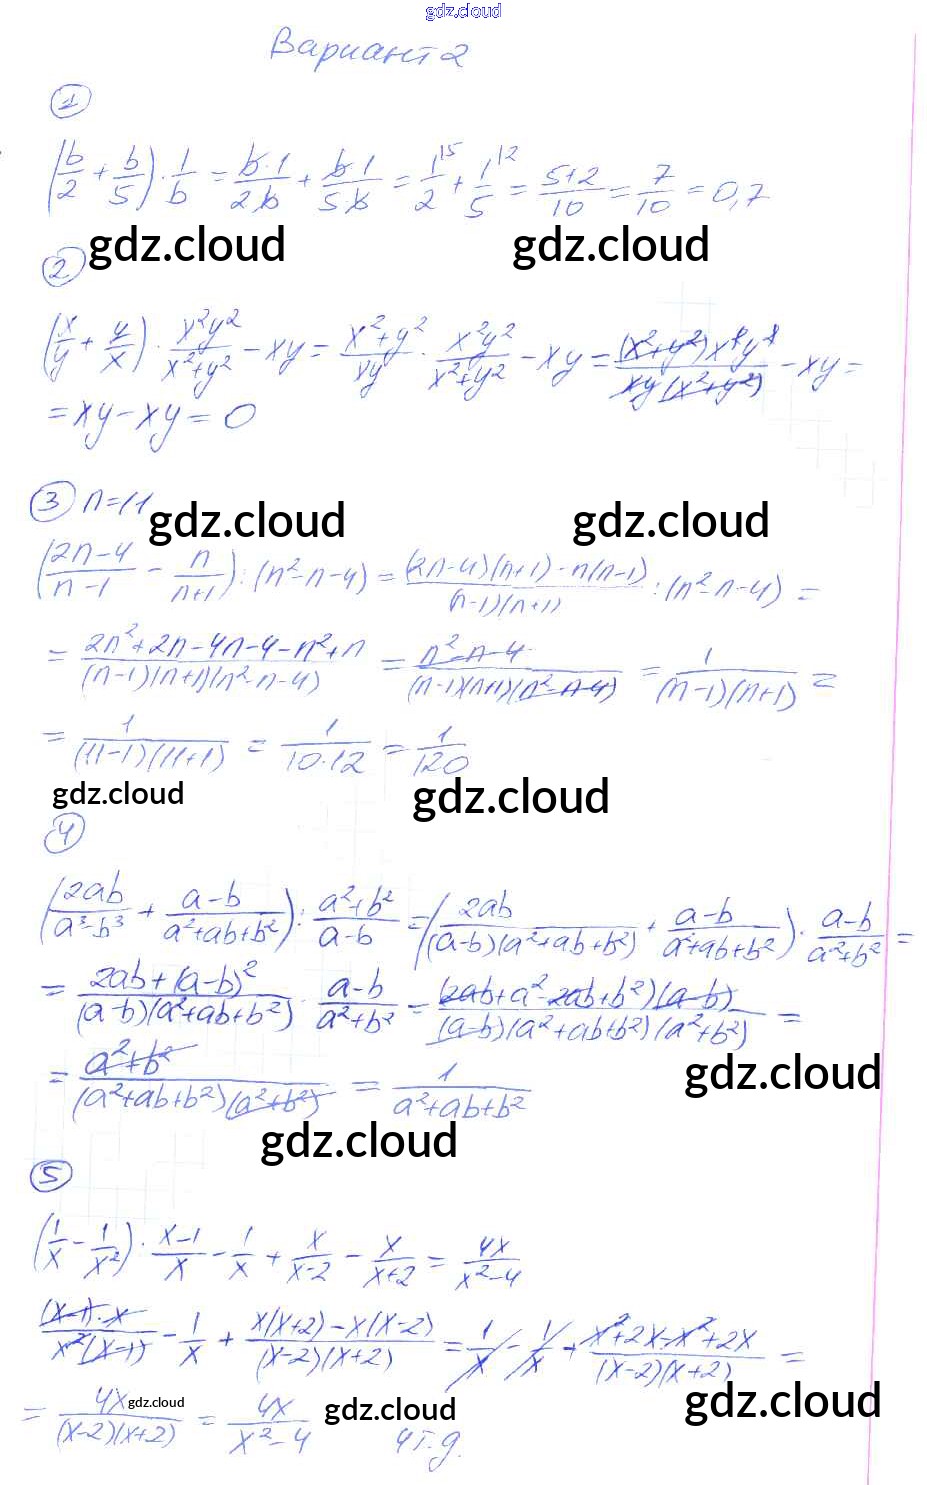 gdz.cloud
Вариант 2
1
(b/2 + b/5) · 1/b = b·1/2b + b·1/5b = 1^15/2 + 1^12/5 = 5+2/10 = 7/10 = 0,7
gdz.cloud gdz.cloud
2
(x/y + y/x) · x²y²/x²+y² - xy = x²+y²/xy · x²y²/x²+y² - xy = (x²+y²)x²y²/xy(x²+y²) - xy =
= xy - xy = 0
3 n=11
gdz.cloud gdz.cloud
(2n-4/n-1 - n/n+1) : (n²-n-4) = (2n-4)(n+1)-n(n-1)/(n-1)(n+1) : (n²-n-4) =
= 2n²+2n-4n-4-n²+n/(n-1)(n+1)(n²-n-4) = n²-n-4/(n-1)(n+1)(n²-n-4) = 1/(n-1)(n+1) =
= 1/(11-1)(11+1) = 1/10·12 = 1/120
gdz.cloud gdz.cloud
4
(2ab/a³-b³ + a-b/a²+ab+b²) : a²+b²/a-b = (2ab/(a-b)(a²+ab+b²) + a-b/a²+ab+b²) · a-b/a²+b² =
= 2ab+(a-b)²/(a-b)(a²+ab+b²) · a-b/a²+b² = (2ab+a²-2ab+b²)(a-b)/(a-b)(a²+ab+b²)(a²+b²) =
= a²+b²/(a²+ab+b²)(a²+b²) = 1/a²+ab+b²
gdz.cloud
gdz.cloud
5
(1/x - 1/x²) · x-1/x - 1/x + x/x-2 - x/x+2 = 4x/x²-4
(x-1)·x/x²(x-1) - 1/x + x(x+2)-x(x-2)/(x-2)(x+2) = 1/x - 1/x + x²+2x-x²+2x/(x-2)(x+2) =
gdz.cloud gdz.cloud gdz.cloud
= 4x/(x-2)(x+2) = 4x/x²-4 чт.д.